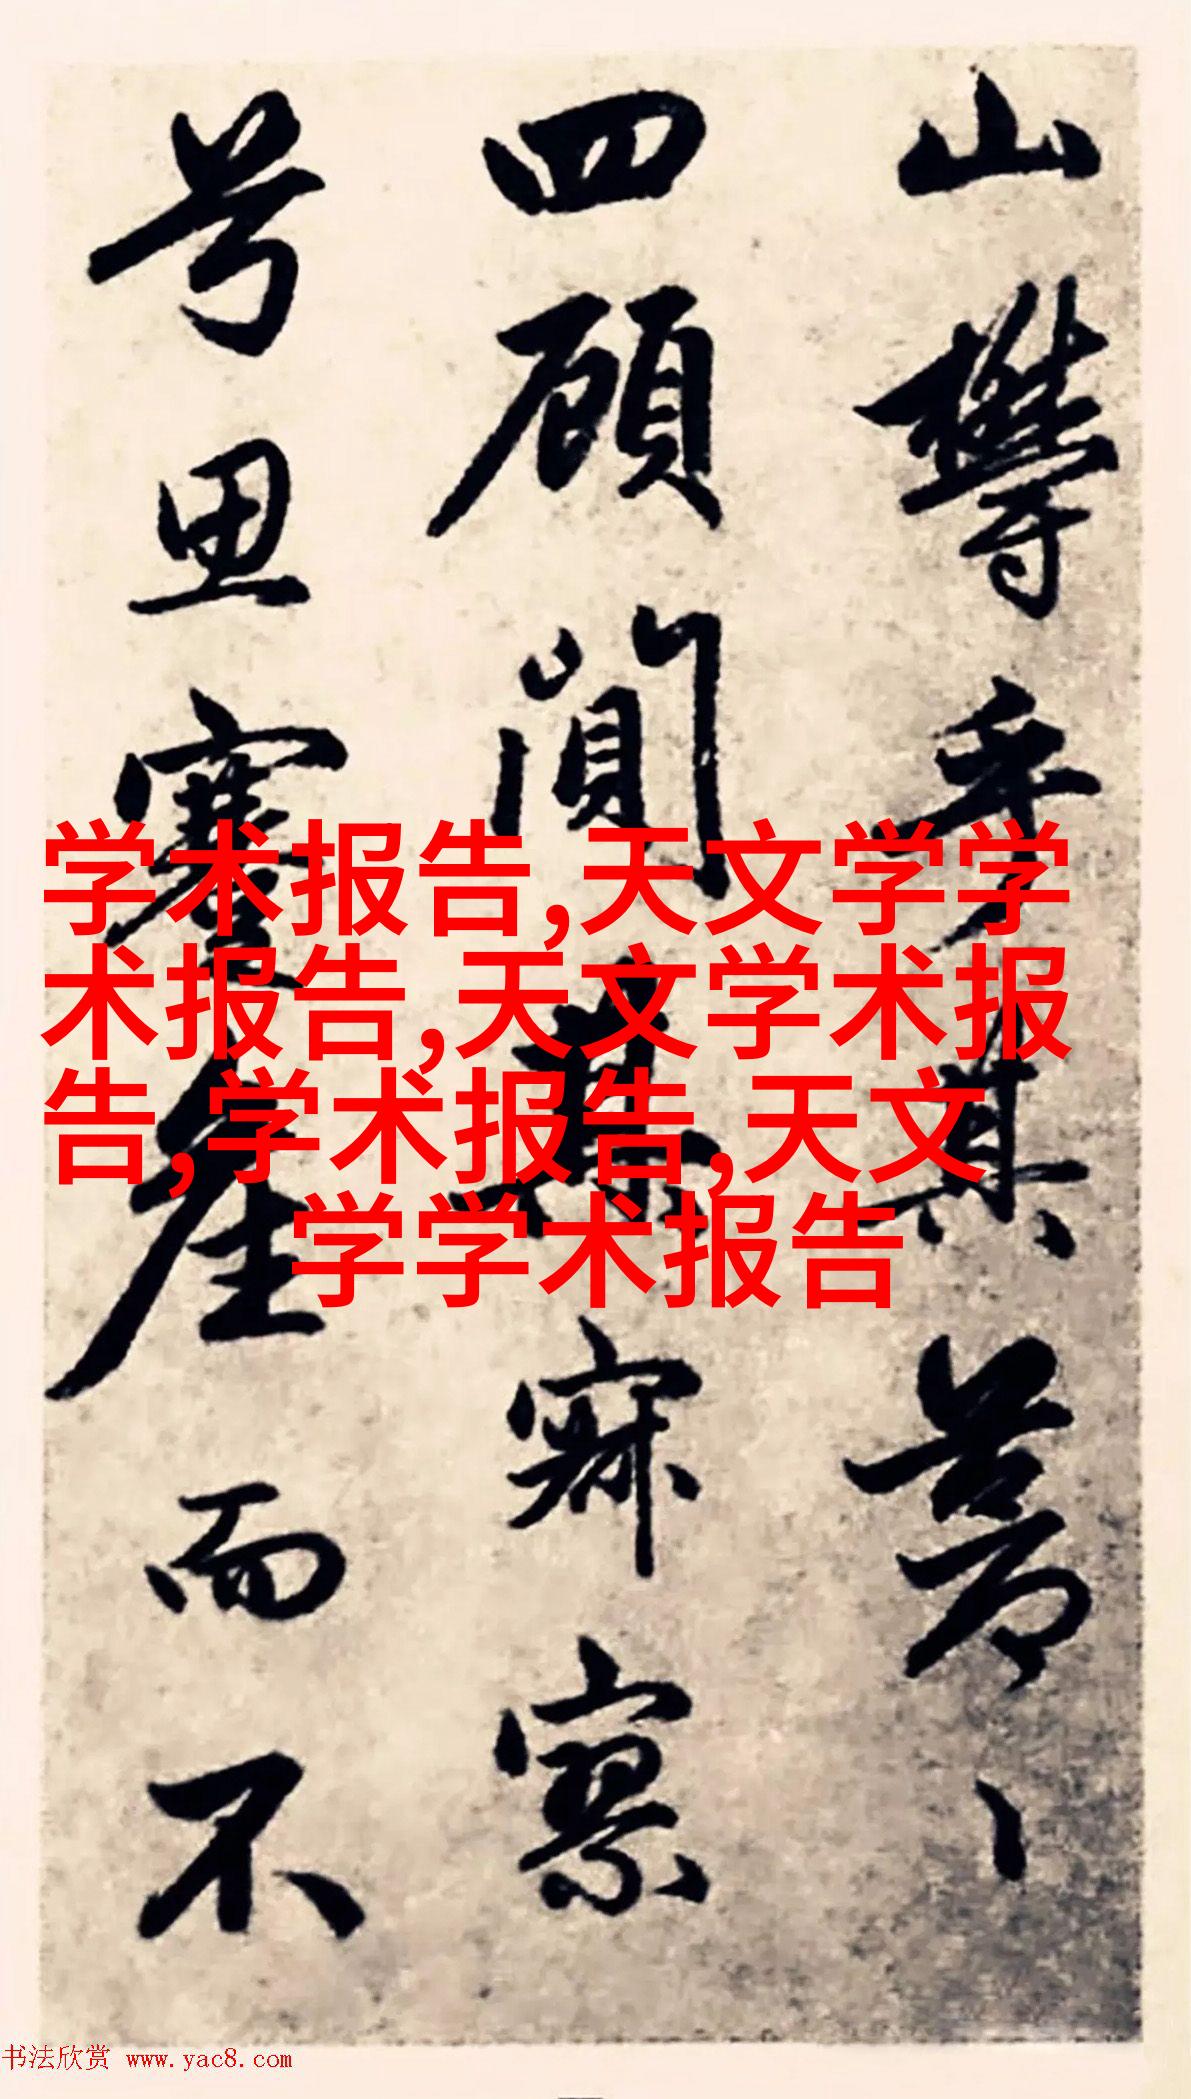 山欝乎其蒼〻
四顧闃其寂寥
兮思蹇產而不
学术报告,天文学学
术报告,天文学术报
告,学术报告,天文
学学术报告
书法欣赏 www.yac8.com